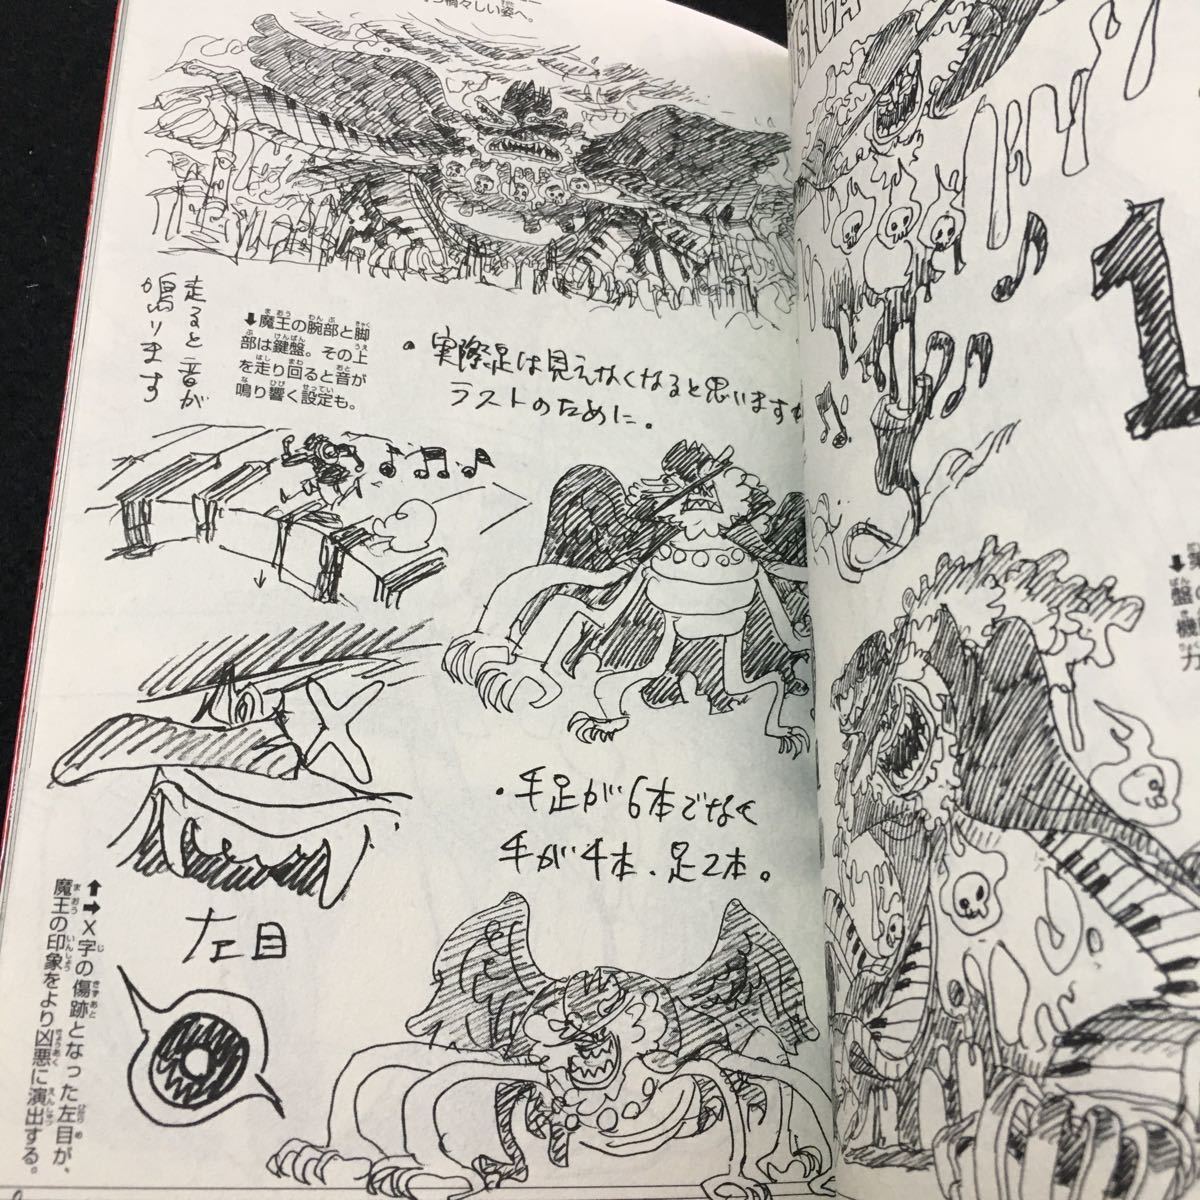 々しい姿へ。
走ると音が
鳴ります
⬇魔王の腕部と脚
部は鍵盤。その上
を走り回ると音が
鳴り響く設定も。
• 実際足は見えなくなると思いますが
ラストのために。
・手足が6本でなく
手が4本、足2本。
左目
⬆➡X字の傷跡となった左目が、
魔王の印象をより凶悪に演出する。
1
盤
機